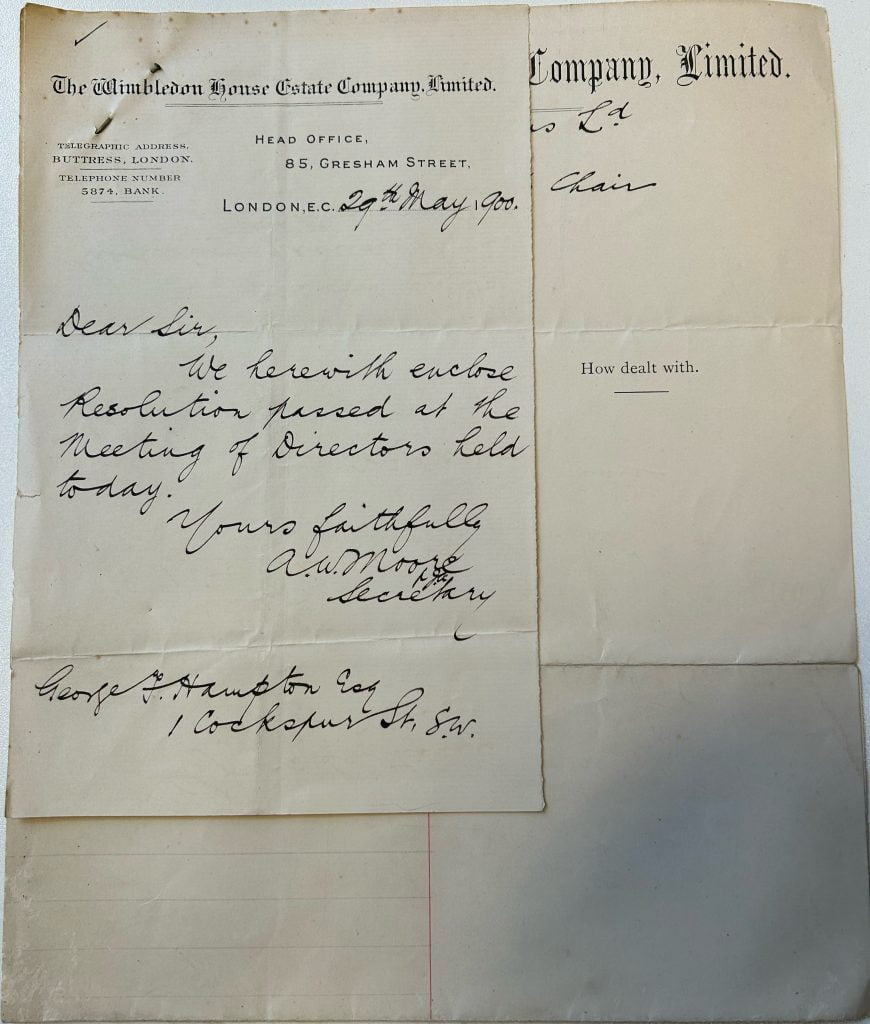 The Wimbledon House Estate Company, Limited.
TELEGRAPHIC ADDRESS,
BUTTRESS, LONDON.
TELEPHONE NUMBER
5874, BANK.
HEAD OFFICE,
85, GRESHAM STREET,
LONDON, E.C. 29th May 1900.
Dear Sir,
We herewith enclose
Resolution passed at the
Meeting of Directors held
today.
Yours faithfully
A. W. Moore
Secretary
George F. Hampton Esq
1 Cockspur St, S.W.
Company, Limited.
Ld
Chair
How dealt with.